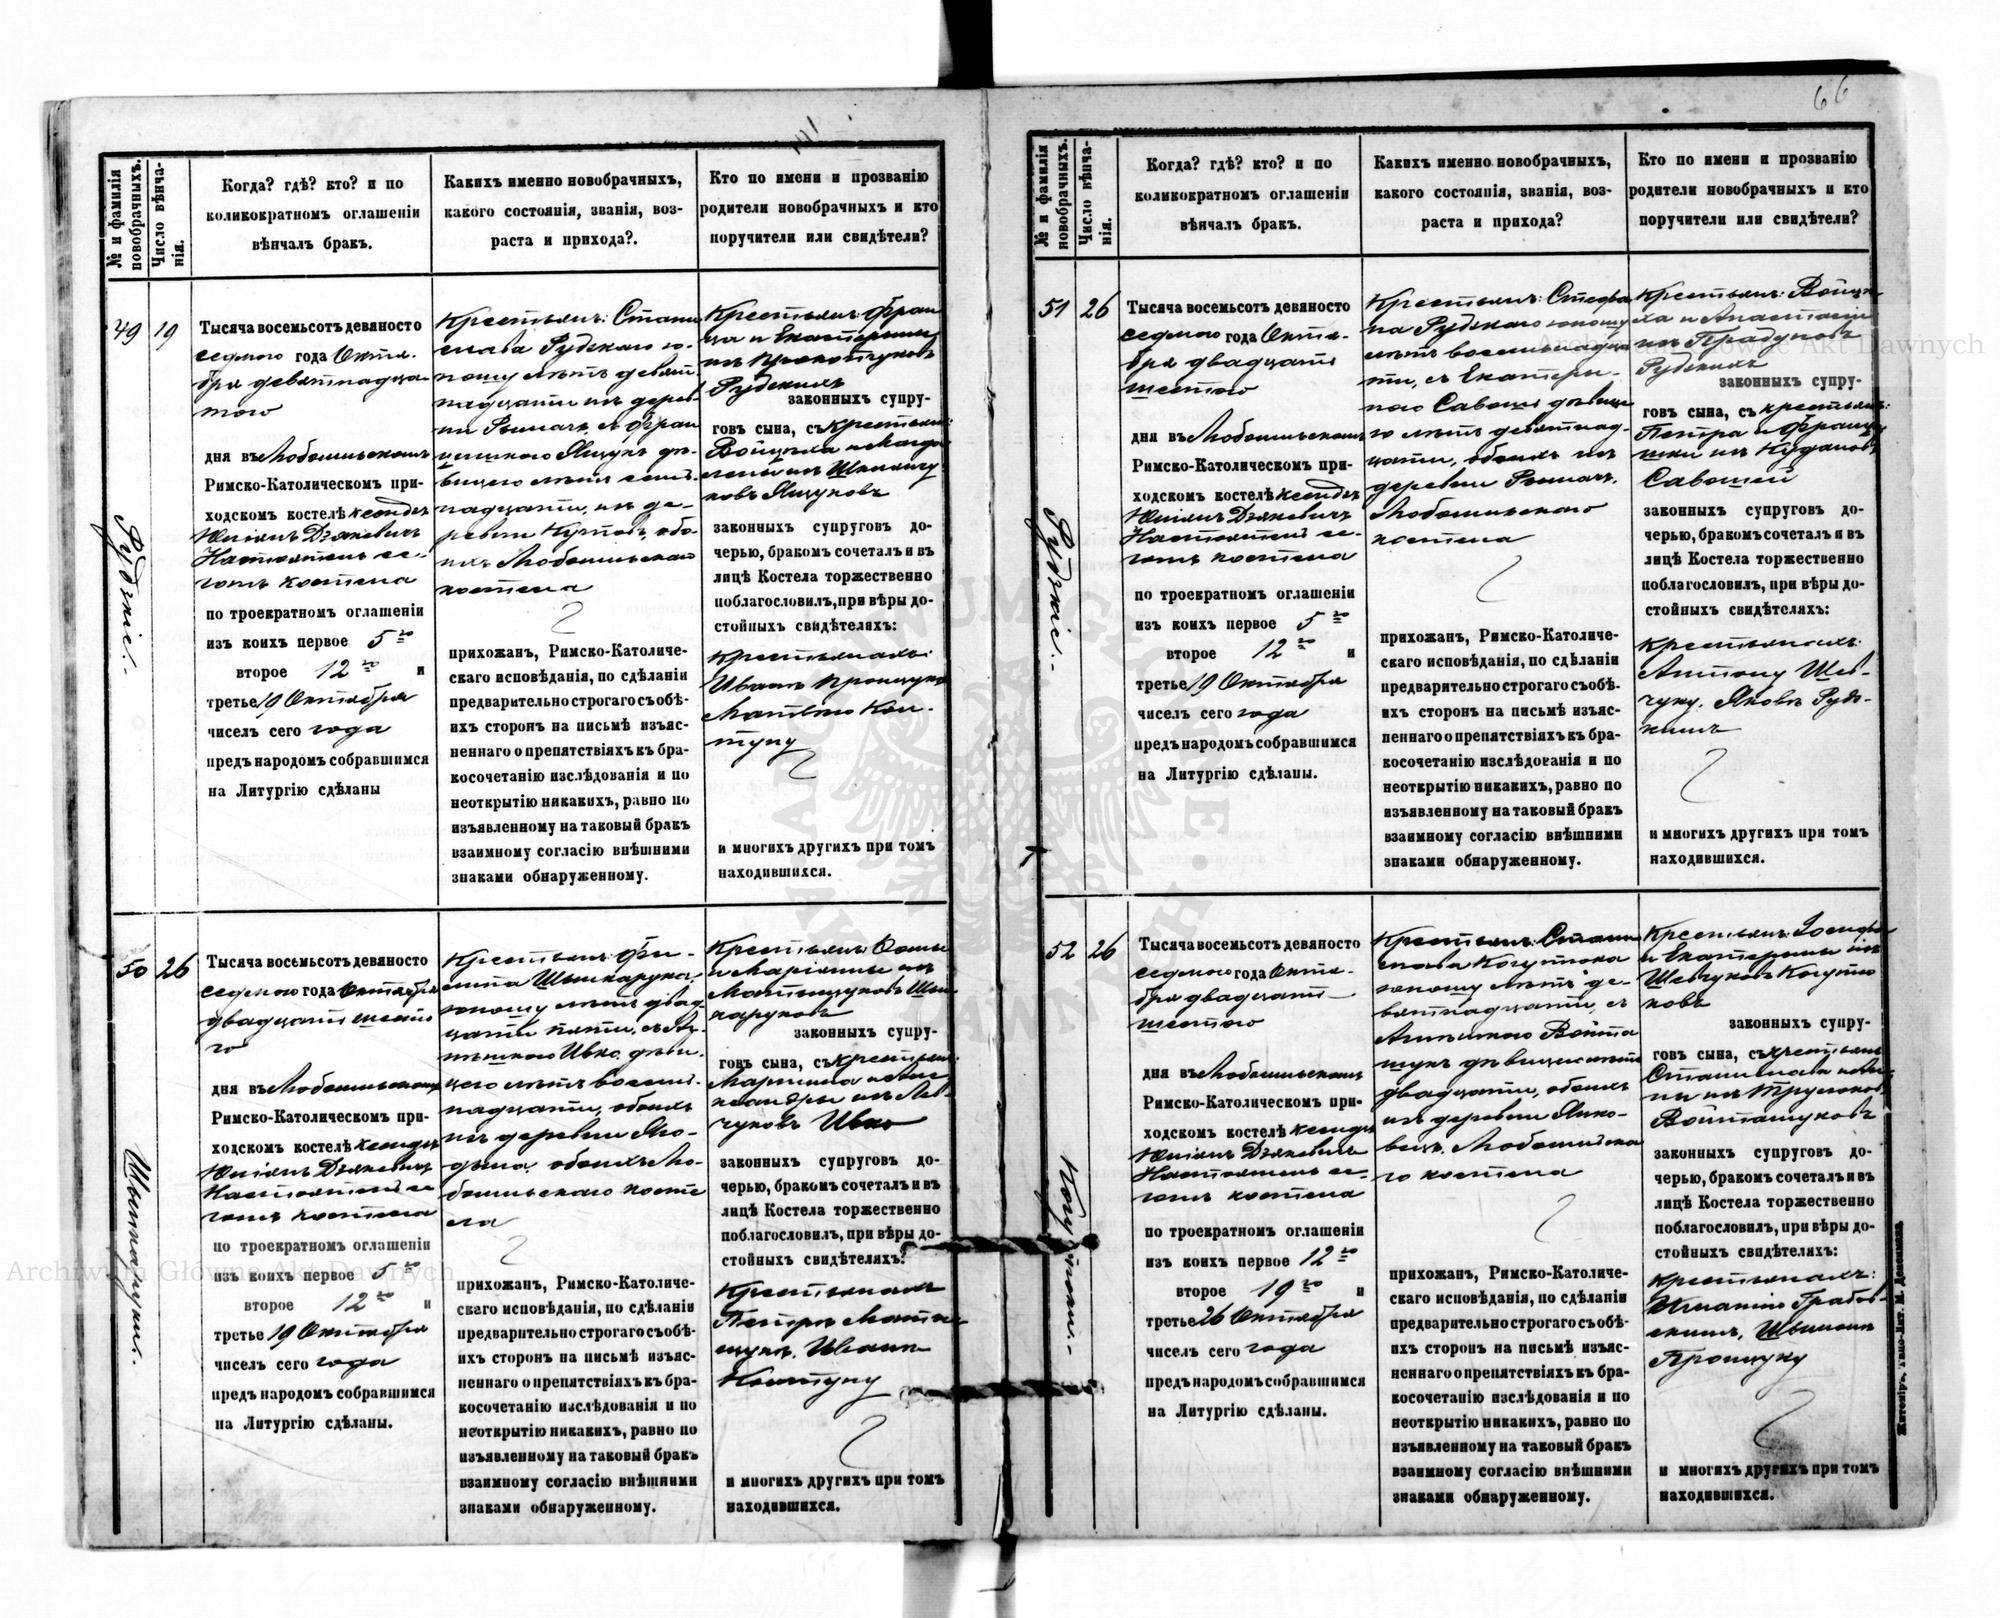 66
№ и фамилія новобрачныхъ.
Число вѣнча-
нія.
Когда? гдѣ? кто? и по
коликократномъ оглашеніи
вѣнчалъ бракъ.
Какихъ именно новобрачныхъ,
какого состоянія, званія, воз-
раста и прихода?.
Кто по имени и прозванію
родители новобрачныхъ и кто
поручители или свидѣтели?
49
19
Рудзкіе.
Тысяча восемьсотъ девяносто
седьмого года Октя-
бря девятнадца-
того
дня въ Любошильскомъ
Римско-Католическомъ при-
ходскомъ костелѣ ксендзъ
Дзякевичъ
Настоятель се-
готъ костела
по троекратномъ оглашеніи
изъ коихъ первое 5го
второе 12го и
третье 19 Октября
чиселъ сего года
предъ народомъ собравшимся
на Литургію сдѣланы
Крестьян: Стани
слава Рудзкаго ю-
ношу лѣтъ девят
надцати изъ дерев
ни съ Фран
цишкою Яшукъ дѣ-
вицею лѣтъ сем-
надцати, изъ де-
ревни обо-
ихъ Любошильскаго
костела
прихожан, Римско-Католиче-
скаго исповѣданія, по сдѣланіи
предварительно строгаго съ обѣ-
ихъ сторонъ на письмѣ изъяс-
неннаго о препятствіяхъ къ бра-
косочетанію изслѣдованія и по
неоткрытію никакихъ, равно по
изъявленному на таковый бракъ
взаимному согласію внѣшними
знаками обнаруженному.
Крестьян: Фран
ца и Екатерины
изъ
Рудзкихъ
законныхъ супру-
говъ сына, съ крестьян:
Войцѣха и Магда
лены изъ
ковъ Яшуковъ
законныхъ супруговъ до-
черью, бракомъ сочеталъ и въ
лицѣ Костела торжественно
поблагословилъ, при вѣры до-
стойныхъ свидѣтеляхъ:
крестьянахъ:
Иванъ
Матвѣю Ков-
туну
и многихъ другихъ при томъ
находившихся.
50
26
Тысяча восемьсотъ девяносто
седьмого года Октября
двадцать шесто
го
дня въ Любошильскомъ
Римско-Католическомъ при-
ходскомъ костелѣ ксендзъ
Дзякевичъ
Настоятель се
готъ костела
по троекратномъ оглашеніи
изъ коихъ первое 5го
второе 12го и
третье 19 Октября
чиселъ сего года
предъ народомъ собравшимся
на Литургію сдѣланы.
Крестьян: Фи-
юношу лѣтъ двад
цати пяти, съ Аг-
нѣшкою Ивко, дѣви-
цею лѣтъ восем-
надцати, обоихъ
изъ деревни
обоихъ Лю-
бошильскаго косте
ла
прихожан, Римско-Католиче-
скаго исповѣданія, по сдѣланіи
предварительно строгаго съ обѣ-
ихъ сторонъ на письмѣ изъяс-
неннаго о препятствіяхъ къ бра-
косочетанію изслѣдованія и по
неоткрытію никакихъ, равно по
изъявленному на таковый бракъ
взаимному согласію внѣшними
знаками обнаруженному.
Крестьян:
и Маріанны изъ
законныхъ супру-
говъ сына, съ крестьян:
Мартина и Алек
сандры изъ
Ивко
законныхъ супруговъ до-
черью, бракомъ сочеталъ и въ
лицѣ Костела торжественно
поблагословилъ, при вѣры до-
стойныхъ свидѣтеляхъ:
Крестьянахъ
Петръ
Иванъ
Ковтуну
и многихъ другихъ при томъ
находившихся.
№ и фамилія новобрачныхъ.
Число вѣнча-
нія.
Когда? гдѣ? кто? и по
коликократномъ оглашеніи
вѣнчалъ бракъ.
Какихъ именно новобрачныхъ,
какого состоянія, званія, воз-
раста и прихода?
Кто по имени и прозванію
родители новобрачныхъ и кто
поручители или свидѣтели?
51
26
Рудзкіе.
Тысяча восемьсотъ девяносто
седьмого года Октя-
бря двадцать
шестого
дня въ Любошильскомъ
Римско-Католическомъ при-
ходскомъ костелѣ ксендзъ
Дзякевичъ
Настоятель се-
готъ костела
по троекратномъ оглашеніи
изъ коихъ первое 5го
второе 12го и
третье 19 Октября
чиселъ сего года
предъ народомъ собравшимся
на Литургію сдѣланы.
Крестьян: Стефа
на Рудзкаго юношу
лѣтъ восемнадца
ти, съ Екатери-
ною Савошъ дѣвице
ю лѣтъ девятнад
цати, обоихъ изъ
деревни
Любошильскаго
костела
прихожан, Римско-Католиче-
скаго исповѣданія, по сдѣланіи
предварительно строгаго съ обѣ-
ихъ сторонъ на письмѣ изъяс-
неннаго о препятствіяхъ къ бра-
косочетанію изслѣдованія и по
неоткрытію никакихъ, равно по
изъявленному на таковый бракъ
взаимному согласію внѣшними
знаками обнаруженному.
Крестьян: Войцѣ
ха и Анастасіи
изъ
Рудзкихъ
законныхъ супру-
говъ сына, съ крестьян:
Петра и Францы
шки изъ
Савошей
законныхъ супруговъ до-
черью, бракомъ сочеталъ и въ
лицѣ Костела торжественно
поблагословилъ, при вѣры до-
стойныхъ свидѣтеляхъ:
Крестьянахъ:
Антону Шев-
чуку, Яковъ Рудз-
кимъ
и многихъ другихъ при томъ
находившихся.
52
26
Тысяча восемьсотъ девяносто
седьмого года Октя-
бря двадцать
шестого
дня въ Любошильскомъ
Римско-Католическомъ при-
ходскомъ костелѣ ксендзъ
Дзякевичъ
Настоятель се-
готъ костела
по троекратномъ оглашеніи
изъ коихъ первое 12го
второе 19го и
третье 26 Октября
чиселъ сего года
предъ народомъ собравшимся
на Литургію сдѣланы.
Крестьян: Стани
слава Когутюка
юношу лѣтъ де-
вятнадцати, съ
Войта
шукъ дѣвицею лѣтъ
двадцати, обоихъ
изъ деревни Янко-
вецъ Любошильска
го костела
прихожан, Римско-Католиче-
скаго исповѣданія, по сдѣланіи
предварительно строгаго съ обѣ-
ихъ сторонъ на письмѣ изъяс-
неннаго о препятствіяхъ къ бра-
косочетанію изслѣдованія и по
неоткрытію никакихъ, равно по
изъявленному на таковый бракъ
взаимному согласію внѣшними
знаками обнаруженному.
Крестьян: Іосифа
и Екатерины изъ
Шевчуковъ Когутю
ковъ
законныхъ супру-
говъ сына, съ крестьян:
Станислава и
Войташуковъ
законныхъ супруговъ до-
черью, бракомъ сочеталъ и въ
лицѣ Костела торжественно
поблагословилъ, при вѣры до-
стойныхъ свидѣтеляхъ:
Крестьянахъ:
Игнатію Грабов-
скимъ,
Пронцуку
и многихъ другихъ при томъ
находившихся.
Archiwum Główne Akt Dawnych
Archiwum Główne Akt Dawnych